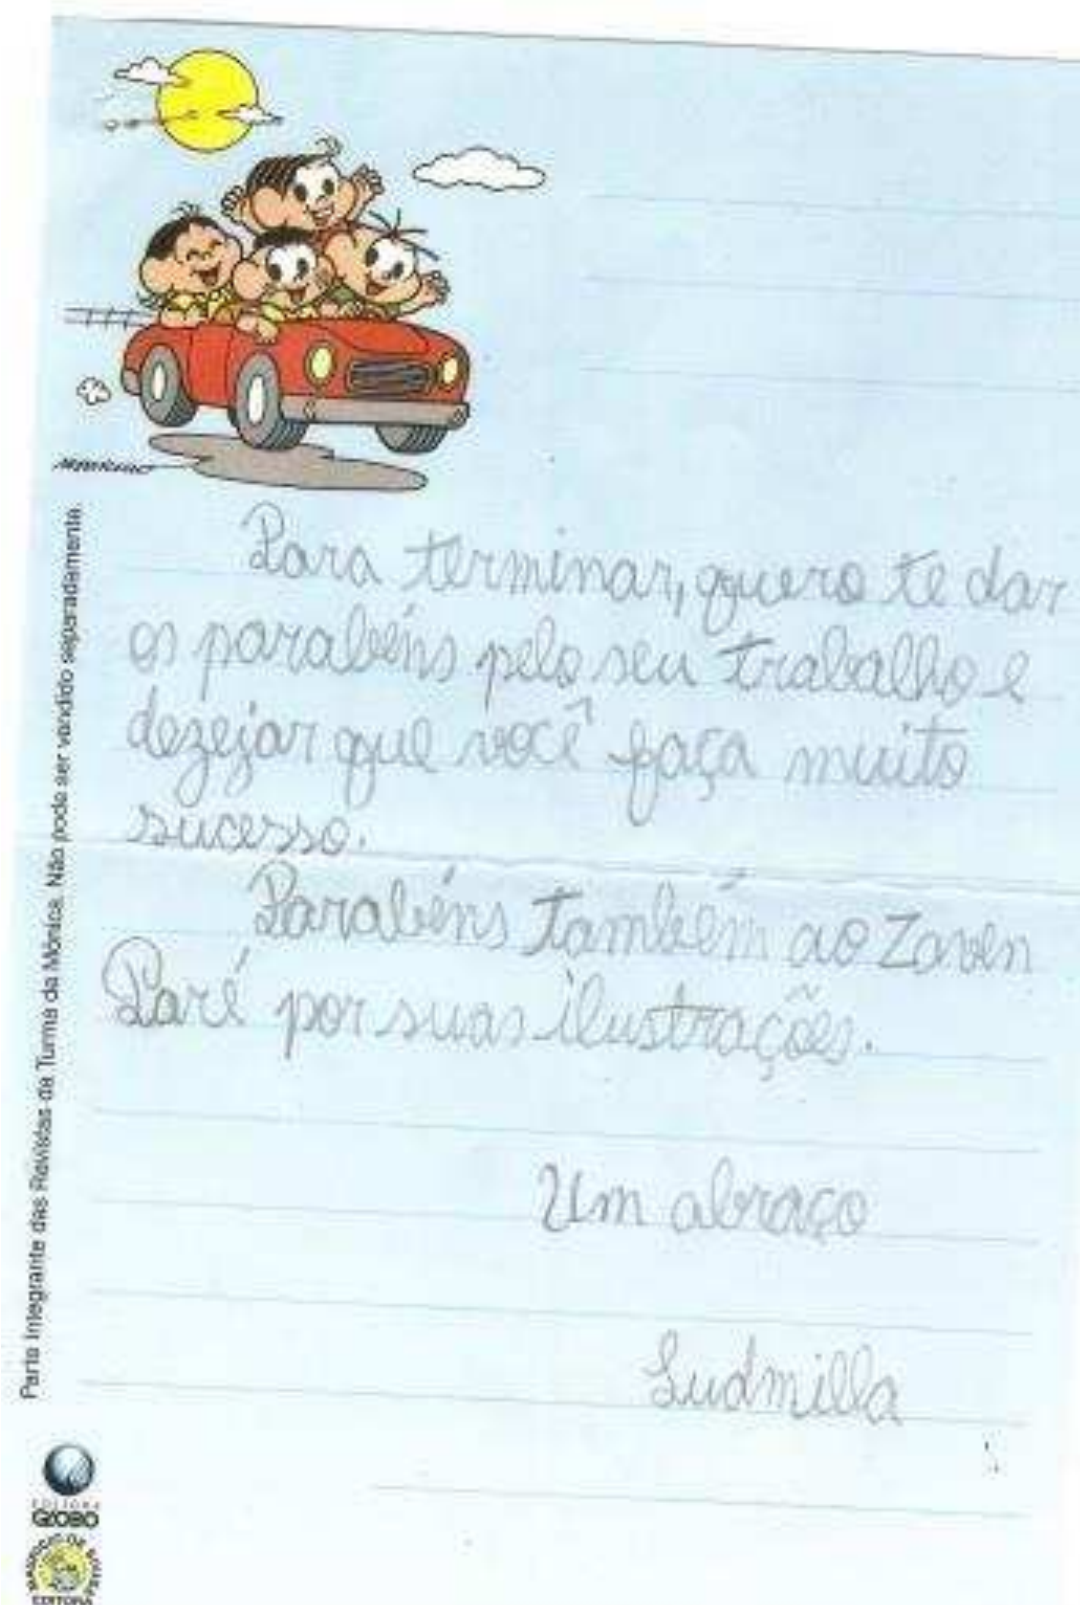 Para terminar, quero te dar
os parabéns pelo seu trabalho e
dezejar que você faça muito
sucesso.
Parabéns também ao Zaven
Paré por suas ilustrações.
Um abraço
Ludmilla
Parte integrante das Revistas da Turma da Mônica. Não pode ser vendido separadamente.
EDITORA
GLOBO
MAURICIO DE SOUSA
EDITORA